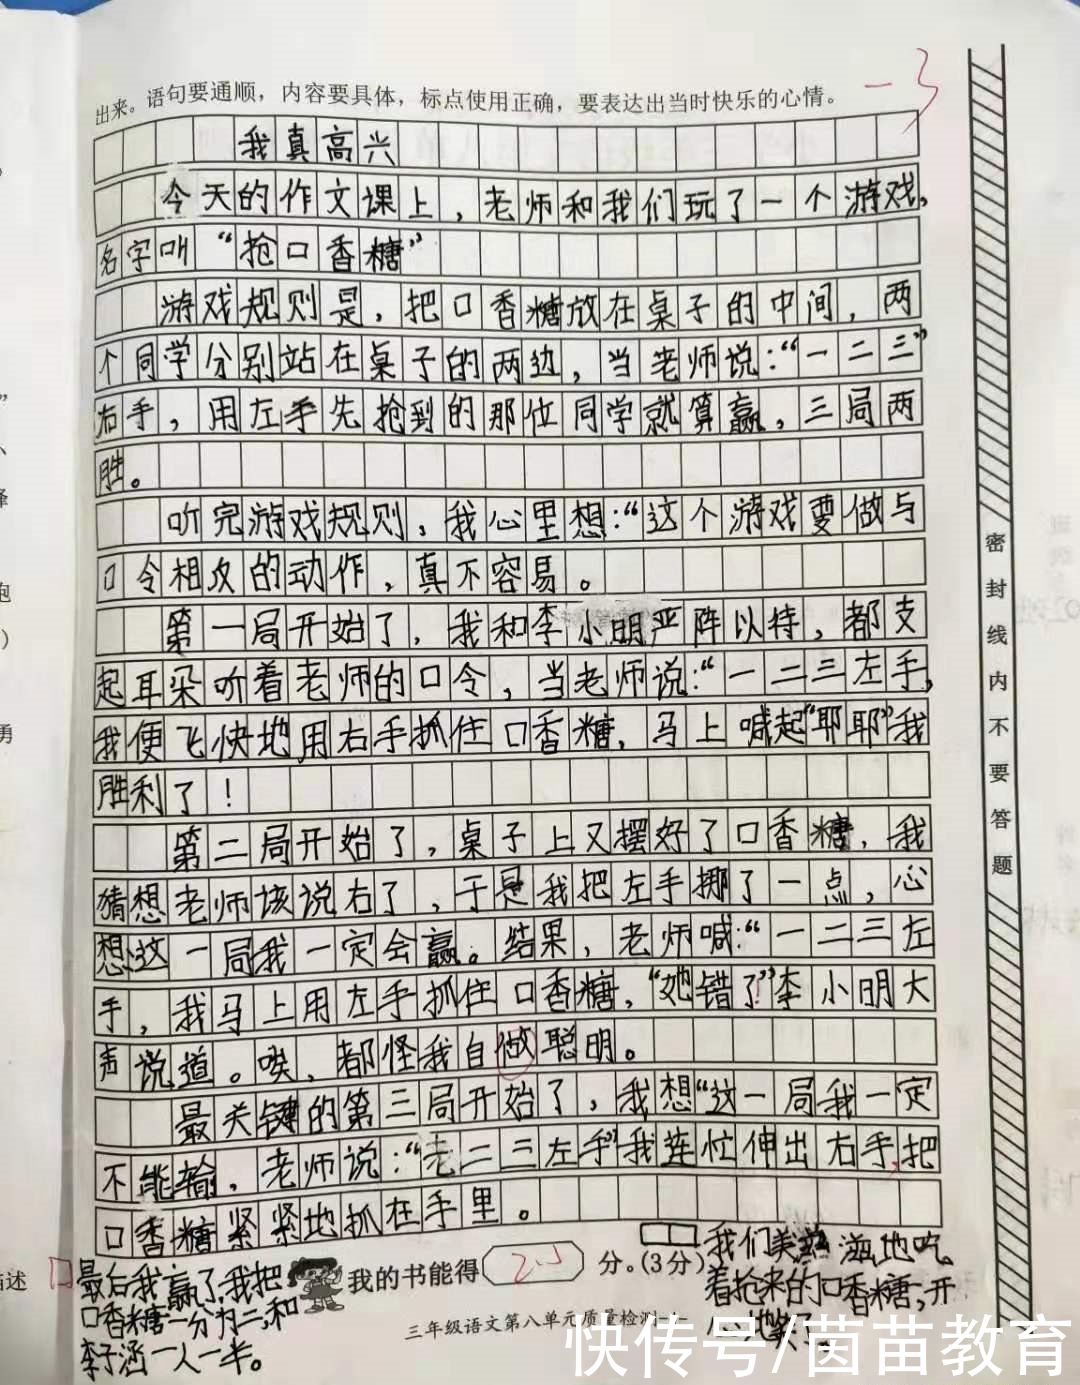 出来。语句要通顺，内容要具体，标点使用正确，要表达出当时快乐的心情。
-3
我真高兴
今天的作文课上，老师和我们玩了一个游戏，
名字叫“抢口香糖”
游戏规则是，把口香糖放在桌子的中间，两
个同学分别站在桌子的两边，当老师说：“一二三”
右手，用左手先抢到的那位同学就算赢，三局两
胜。
听完游戏规则，我心里想：“这个游戏要做与
口令相反的动作，真不容易。
第一局开始了，我和李小明严阵以待，都支
起耳朵听着老师的口令，当老师说：“一二三左手，
我便飞快地用右手抓住口香糖，马上喊起“耶耶”我
胜利了！
第二局开始了，桌子上又摆好了口香糖，我
猜想老师该说右了，于是我把左手挪了一点，心
想这一局我一定会赢。结果，老师喊：“一二三左
手，我马上用左手抓住口香糖，“她错了”李小明大
声说道。唉，都怪我自做聪明。
最关键的第三局开始了，我想“这一局我一定
不能输，老师说：“老二三左手”我连忙伸出右手，把
口香糖紧紧地抓在手里。
最后我赢了，我把
口香糖一分为二，和
李子涵一人一半。
我的书能得 2.5 分。(3分)
我们美滋滋地吃
着抢来的口香糖，开
心地笑了
三年级语文第八单元质量检测
密封线内不要答题
快传号/茵苗教育